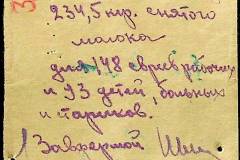 234,5 кгр. снятого
молока
для 148 евреев рабочих
и 93 детей, больных
и стариков.
Завфермой